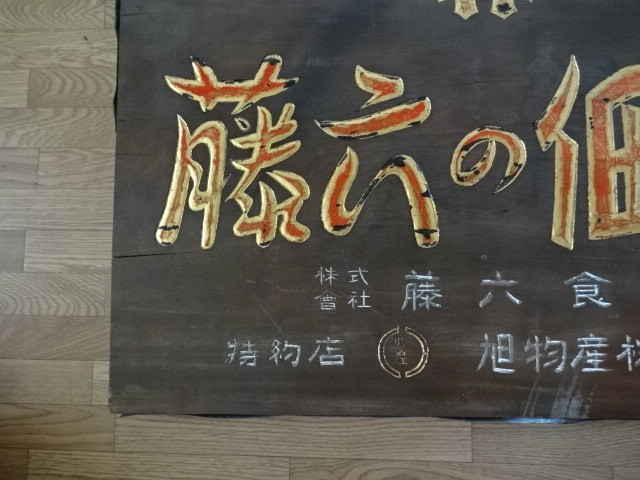 藤六の佃
株式
會社 藤六食
特約店 旭物産株